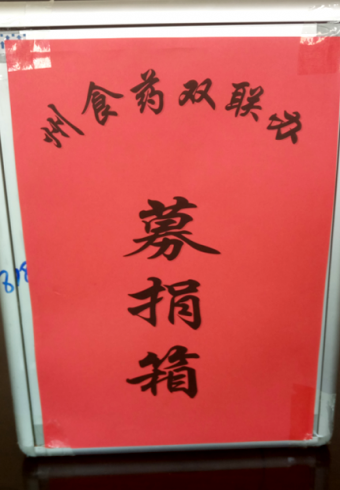 州食药双联办
募捐箱